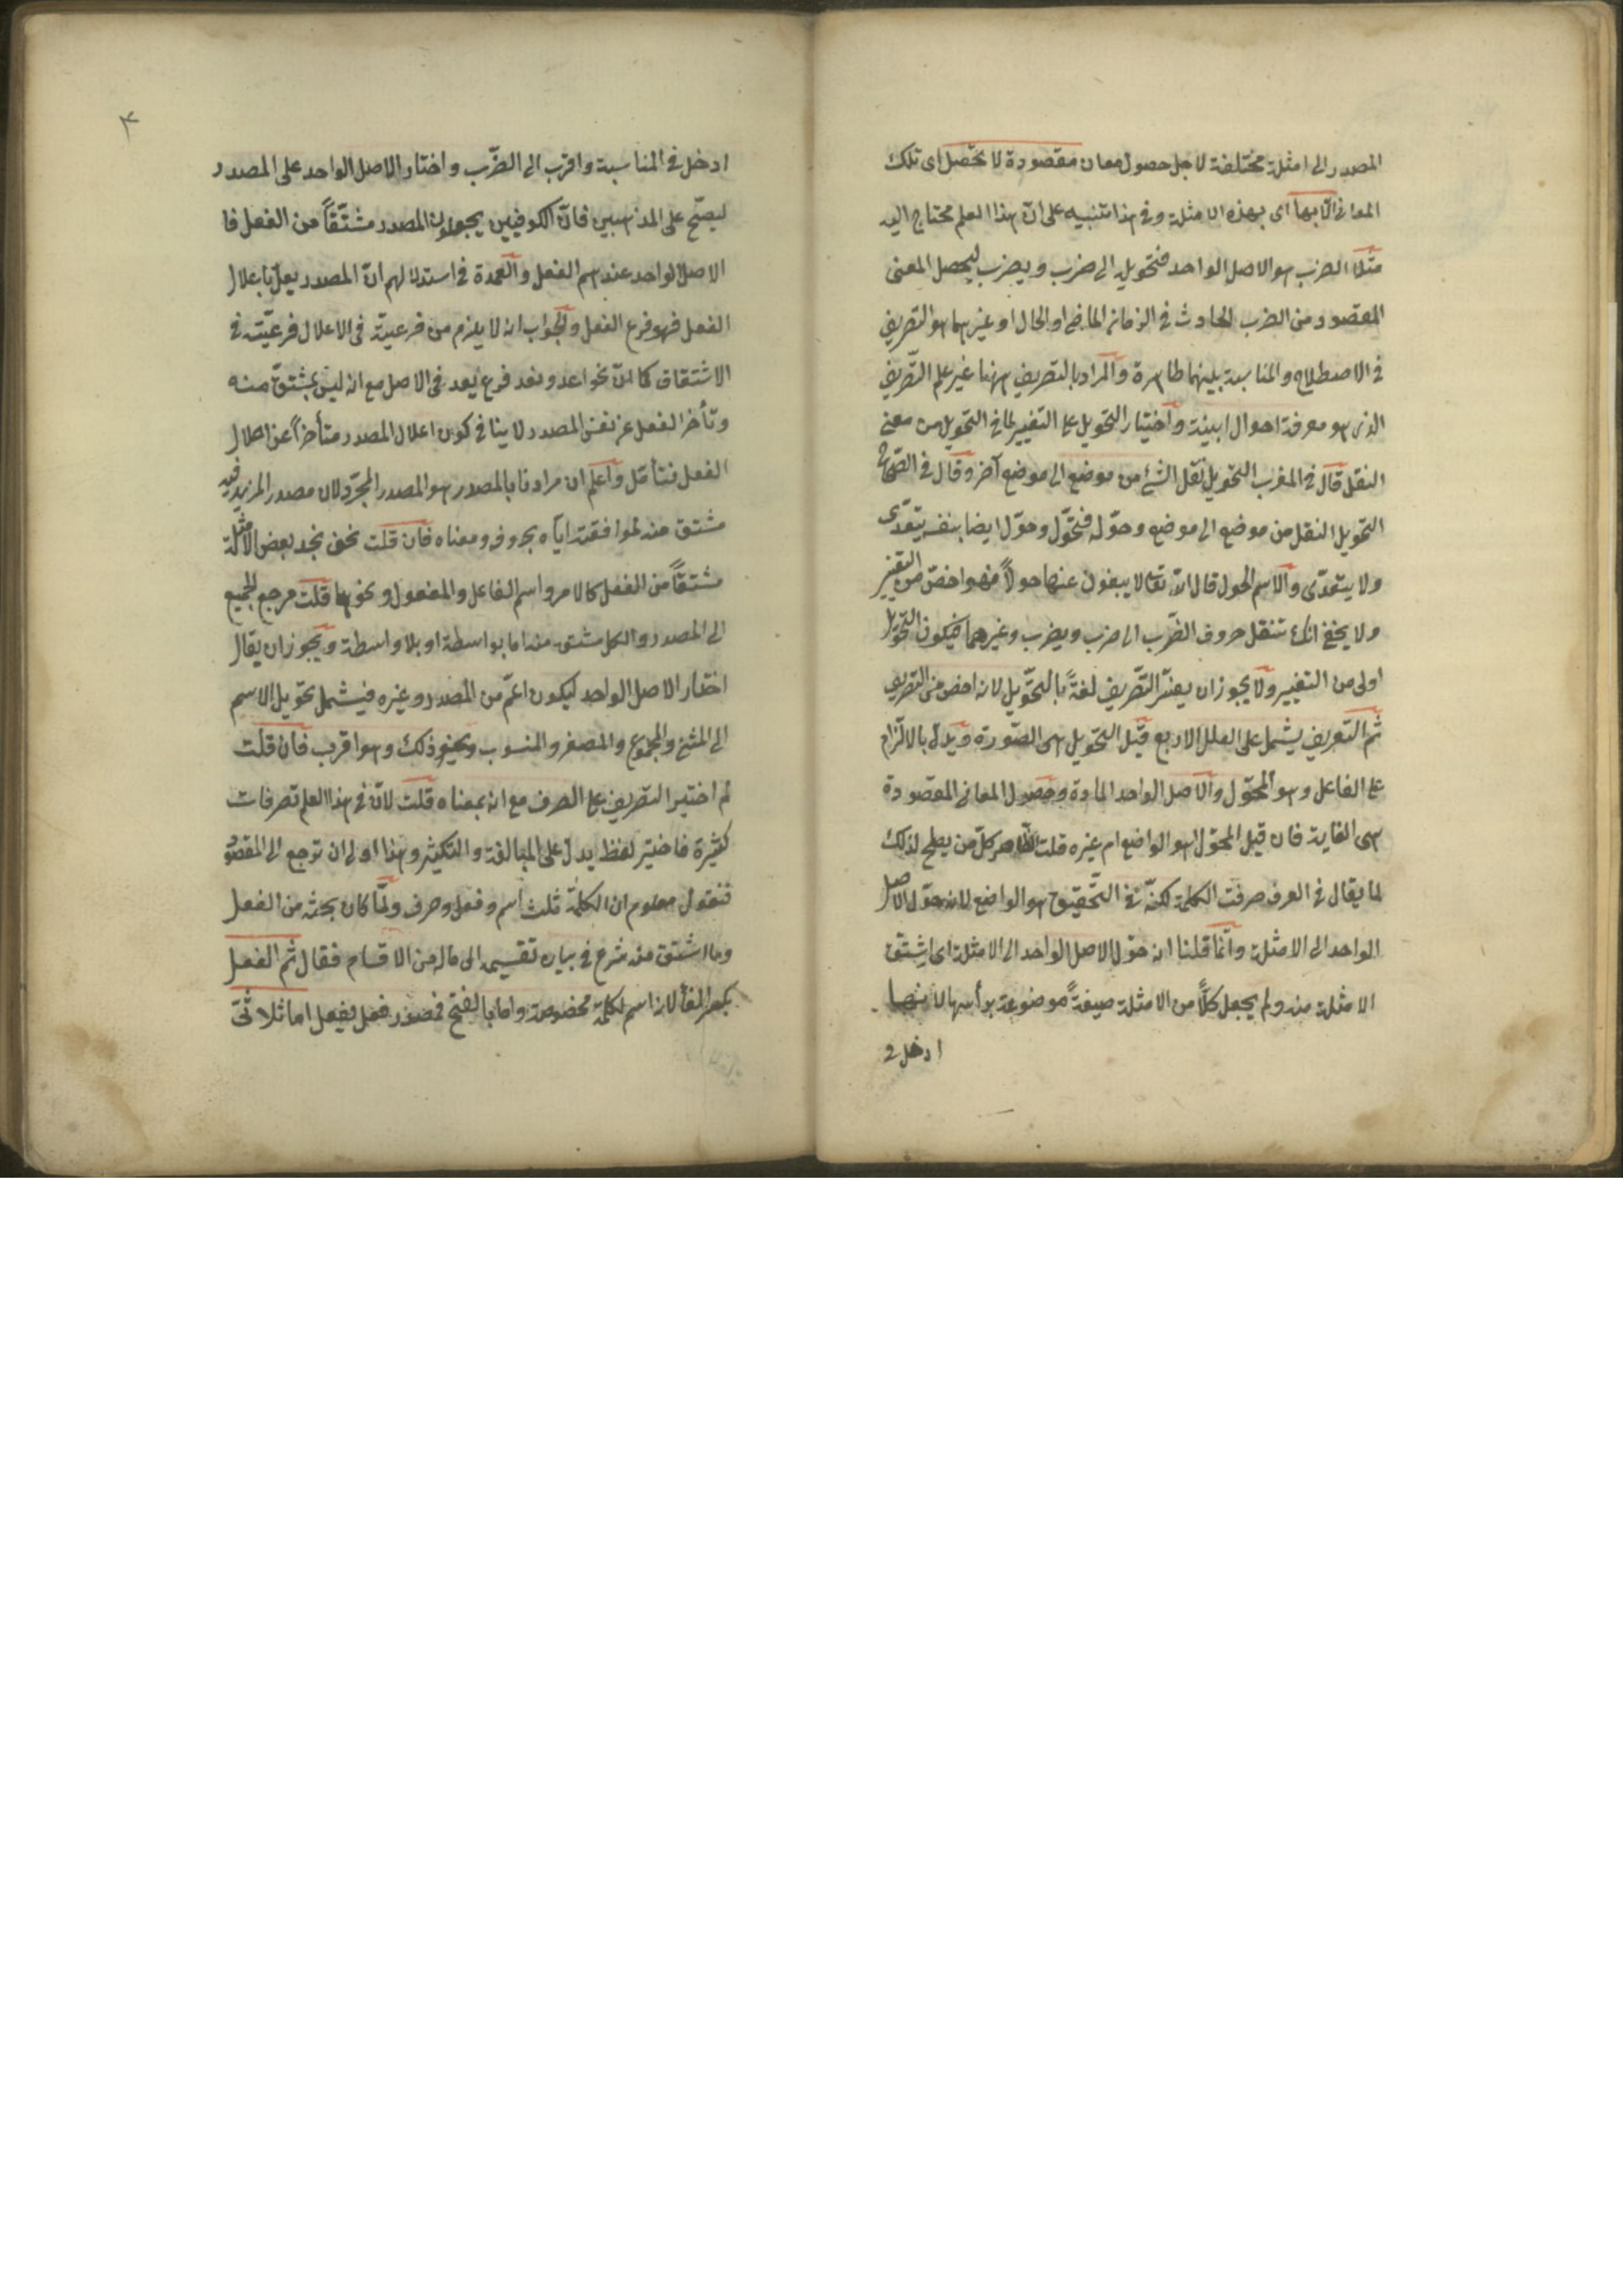 المصدر الى امثلة مختلفة لاجل حصول معان مقصودة لا تحصل اى تلك
المعانى الّا بها اى بهذه الامثلة وفى هذا تنبيه على انّ هذا العلم محتاج اليه
مثلا الضرب هو الاصل الواحد فتحويله الى ضرب ويضرب ليحصل المعنى
المقصود من الضرب الحادث فى الزمان الماضى او الحال او غيرهما هو التصريف
فى الاصطلاح والمناسبة بينهما ظاهرة والمراد بالتصريف ههنا غير علم التّصريف
الذى هو معرفة احوال ابنية واختيار التحويل على التغيير لما فى التحويل من معنى
النقل قال فى المغرب التحويل نقل الشئ من موضع الى موضع آخر وقال فى الصّحاح
التحويل النقل من موضع الى موضع وحوّله فتحوّل وحوّل ايضا بنفسه يتعدّى
ولا يتعدّى والاسم الحول قال اللّه تعالى لا يبغون عنها حولاً فهو اخصّ من التغيير
ولا يخفى انك تنقل حروف الضّرب الى ضرب ويضرب وغيرهما فيكون التحويل
اولى من التغيير ولا يجوز ان يفسّر التّصريف لغةً بالتحّويل لانه اخص من التصريف
ثم التعريف يشتمل على العلل الاربع قيل التحويل هى الصّورة ويدلّ بالالتزام
على الفاعل وهو المحوّل والاصل الواحد المادة وحصول المعانى المقصودة
هى الغاية فان قيل المحوّل هو الواضع ام غيره قلت الظاهر كلّ من يصلح لذلك
لما يقال فى العرف صرفت الكلمة لكنّه فى التّحقيق هو الواضع لانه حوّل الاصل
الواحد الى الامثلة وانّما قلنا انه حوّل الاصل الواحد الى الامثلة اى اشتقّ
الامثلة منه ولم يجعل كلّاً من الامثلة صيغةً موضوعة برأسها لان هذا
ادخل فى
٣
ادخل فى المناسبة واقرب الى الضّرب واختار الاصل الواحد على المصدر
ليصّح على المذهبين فانّ الكوفيين يجعلون المصدر مشتّقاً من الفعل فا
الاصل الواحد عندهم الفعل والعمدة فى استدلالهم انّ المصدر يعلّ باعلال
الفعل فهو فرع الفعل والجواب انه لا يلزم من فرعيته فى الاعلال فرعيّته فى
الاشتقاق كما انّ نحو اعد ونعد فرع يعد فى الاصل مع انه ليس بمشتقّ منه
وتأخر الفعل عن نفس المصدر لا ينافى كون اعلال المصدر متأخراً عن اعلال
الفعل فتأمّل واعلم ان مرادنا بالمصدر هو المصدر المجرّد لان مصدر المزيد فيه
مشتق منه لموافقته ايّاه بحروفه ومعناه فان قلت نحن نجد بعض الامثلة
مشتقاً من الفعل كالامر واسم الفاعل والمفعول ونحوها قلت مرجع الجميع
الى المصدر والكل مشتق منه اما بواسطة او بلا واسطة ويجوز ان يقال
اختار الاصل الواحد ليكون اعمّ من المصدر وغيره فيشمل تحويل الاسم
الى المثنى والمجموع والمصغر والمنسوب ونحو ذلك وهو اقرب فان قلت
لم اختير التصريف على الصرف مع انه بمعناه قلت لانّ فى هذا العلم تصرفات
كثيرة فاختير لفظ يدلّ على المبالغة والتكثير وهذا اوان ان نرجع الى المقصود
فنقول معلوم ان الكلمة ثلث اسم وفعل وحرف ولمّا كان بحثه من الفعل
وما اشتق منه شرع فى بيان تقسيمه الى ماله من الاقسام فقال ثم الفعل
بكسر الفاء لانه اسم لكلمة مخصوصة واما بالفتح فمصدر فعل يفعل اما ثلاثىّ